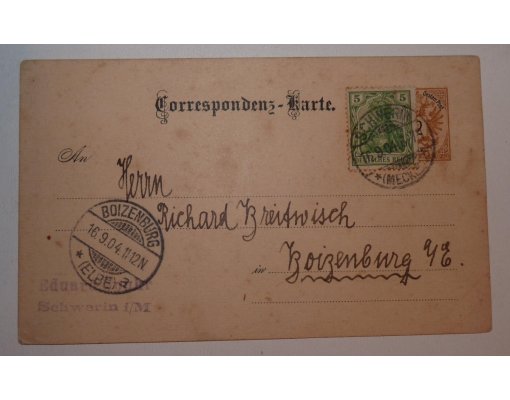 Correspondenz-Karte.
5 5
DEUTSCHES REICH
SCHWERIN
(MECK
2
An
Herrn
Richard Breitwisch
in Boizenburg a/E.
BOIZENBURG
16.9.04.11-12N
* (ELBE) a
Schwerin i/M